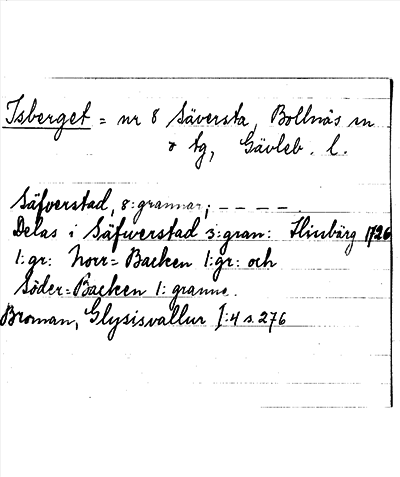 Isberget = nr 8 Säversta, Bollnäs sn
o tg, Gävleb. l.
Säfverstad, 8: grannar; – – – –
Delas i Säfwerstad 3:gran: 1726
1:gr: Norr=Backen 1:gr: och
Söder=Backen 1: granne.
Broman, Glysisvallur I:4 s. 276